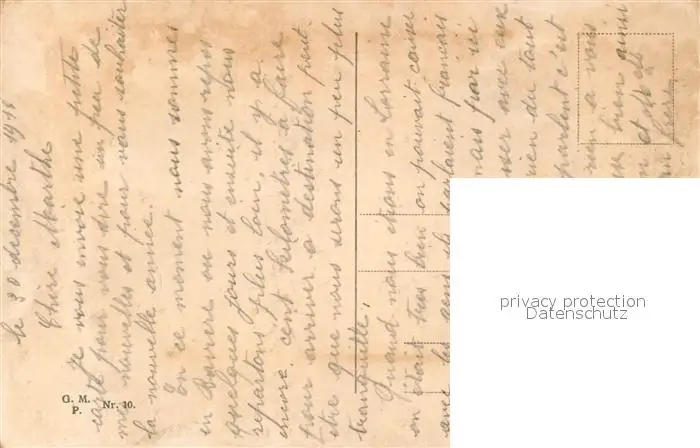 le 30 desembre 1918
Chère Marthe
Je vous envoie une petite
carte pour vous dire un peu de
mes nouvelles et pour vous souhaiter
la nouvelle année.
En ce moment nous sommes
en Baviere ou nous avons repos
quelques jours et ensuite nous
repartons plus loin, et y a
encore cent kilometres à faire
pour arriver a destination peut
être que nous serons un peu plus
tranquille,
Quand nous étions en Lorraine
on était tres bien on pouvait causer
avec les gens ils parlaient francais
mais par ici
avec eux
rien du tout
parlent c'est
a vous
bien aussi
et
G. M.
P. Nr. 10.
privacy protection
Datenschutz